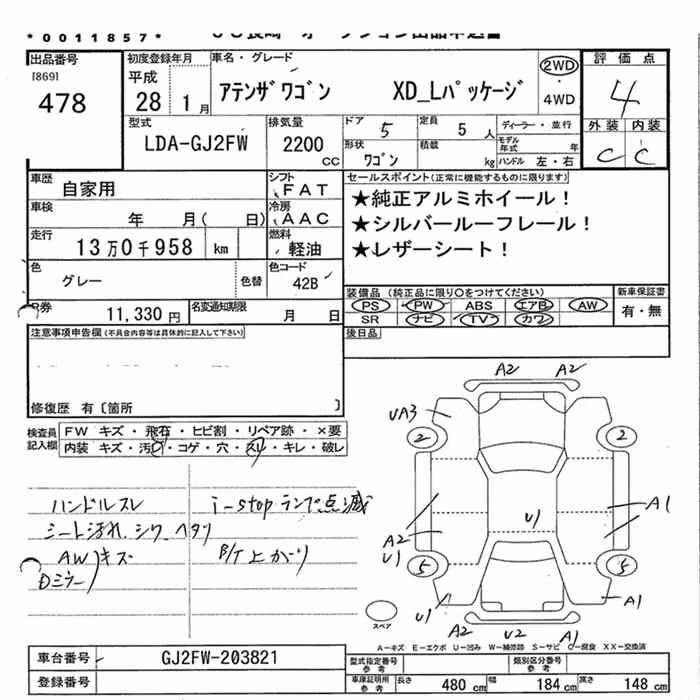 *0011857*
出品番号
[869]
478
初度登録年月
平成
28 1月
車名・グレード
アテンザワゴン XD_Lパッケージ
2WD
4WD
評価点
4
外装 内装
C C
型式
LDA-GJ2FW
排気量
2200
CC
ドア
5
定員
5人
形状
ワゴン
積載
kg
ディーラー・並行
モデル年式 年
ハンドル 左・右
車歴
自家用
シフト
FAT
車検
年 月( 日)
冷房
AAC
走行
13万0千958 km
燃料
軽油
色
グレー
色替
色コード
42B
セールスポイント(正常に機能するものに限ります)
★純正アルミホイール!
★シルバールーフレール!
★レザーシート!
装備品(純正品に限り○をつけてください)
PS PW ABS エアB AW
SR ナビ TV カワ
新車保証書
有・無
後日品
R券
11,330円
名変通知期限
月 日
注意事項申告欄(不具合内容等は具体的に記入して下さい)
修復歴 有〔箇所 〕
検査員記入欄
FW キズ・飛石・ヒビ割・リペア跡・×要
内装 キズ・汚レ・コゲ・穴・スレ・キレ・破レ
ハンドルスレ
シート汚れ、シワ、ヘタリ
AW キズ
Dミラー
i-stopランプ点滅
B/T上がり
A2 A2
UA3
2 2
A2
U1
U1
A1
5 5
U1
A1
A2 U2 A1
スペア
A-キズ E-エクボ U-凹み W-補修跡 S-サビ C-腐食 XX-交換済
車台番号
GJ2FW-203821
登録番号
型式指定番号
参考
類別区分番号
参考
車庫証明用
参考
長さ 480cm 幅 184cm 高さ 148cm